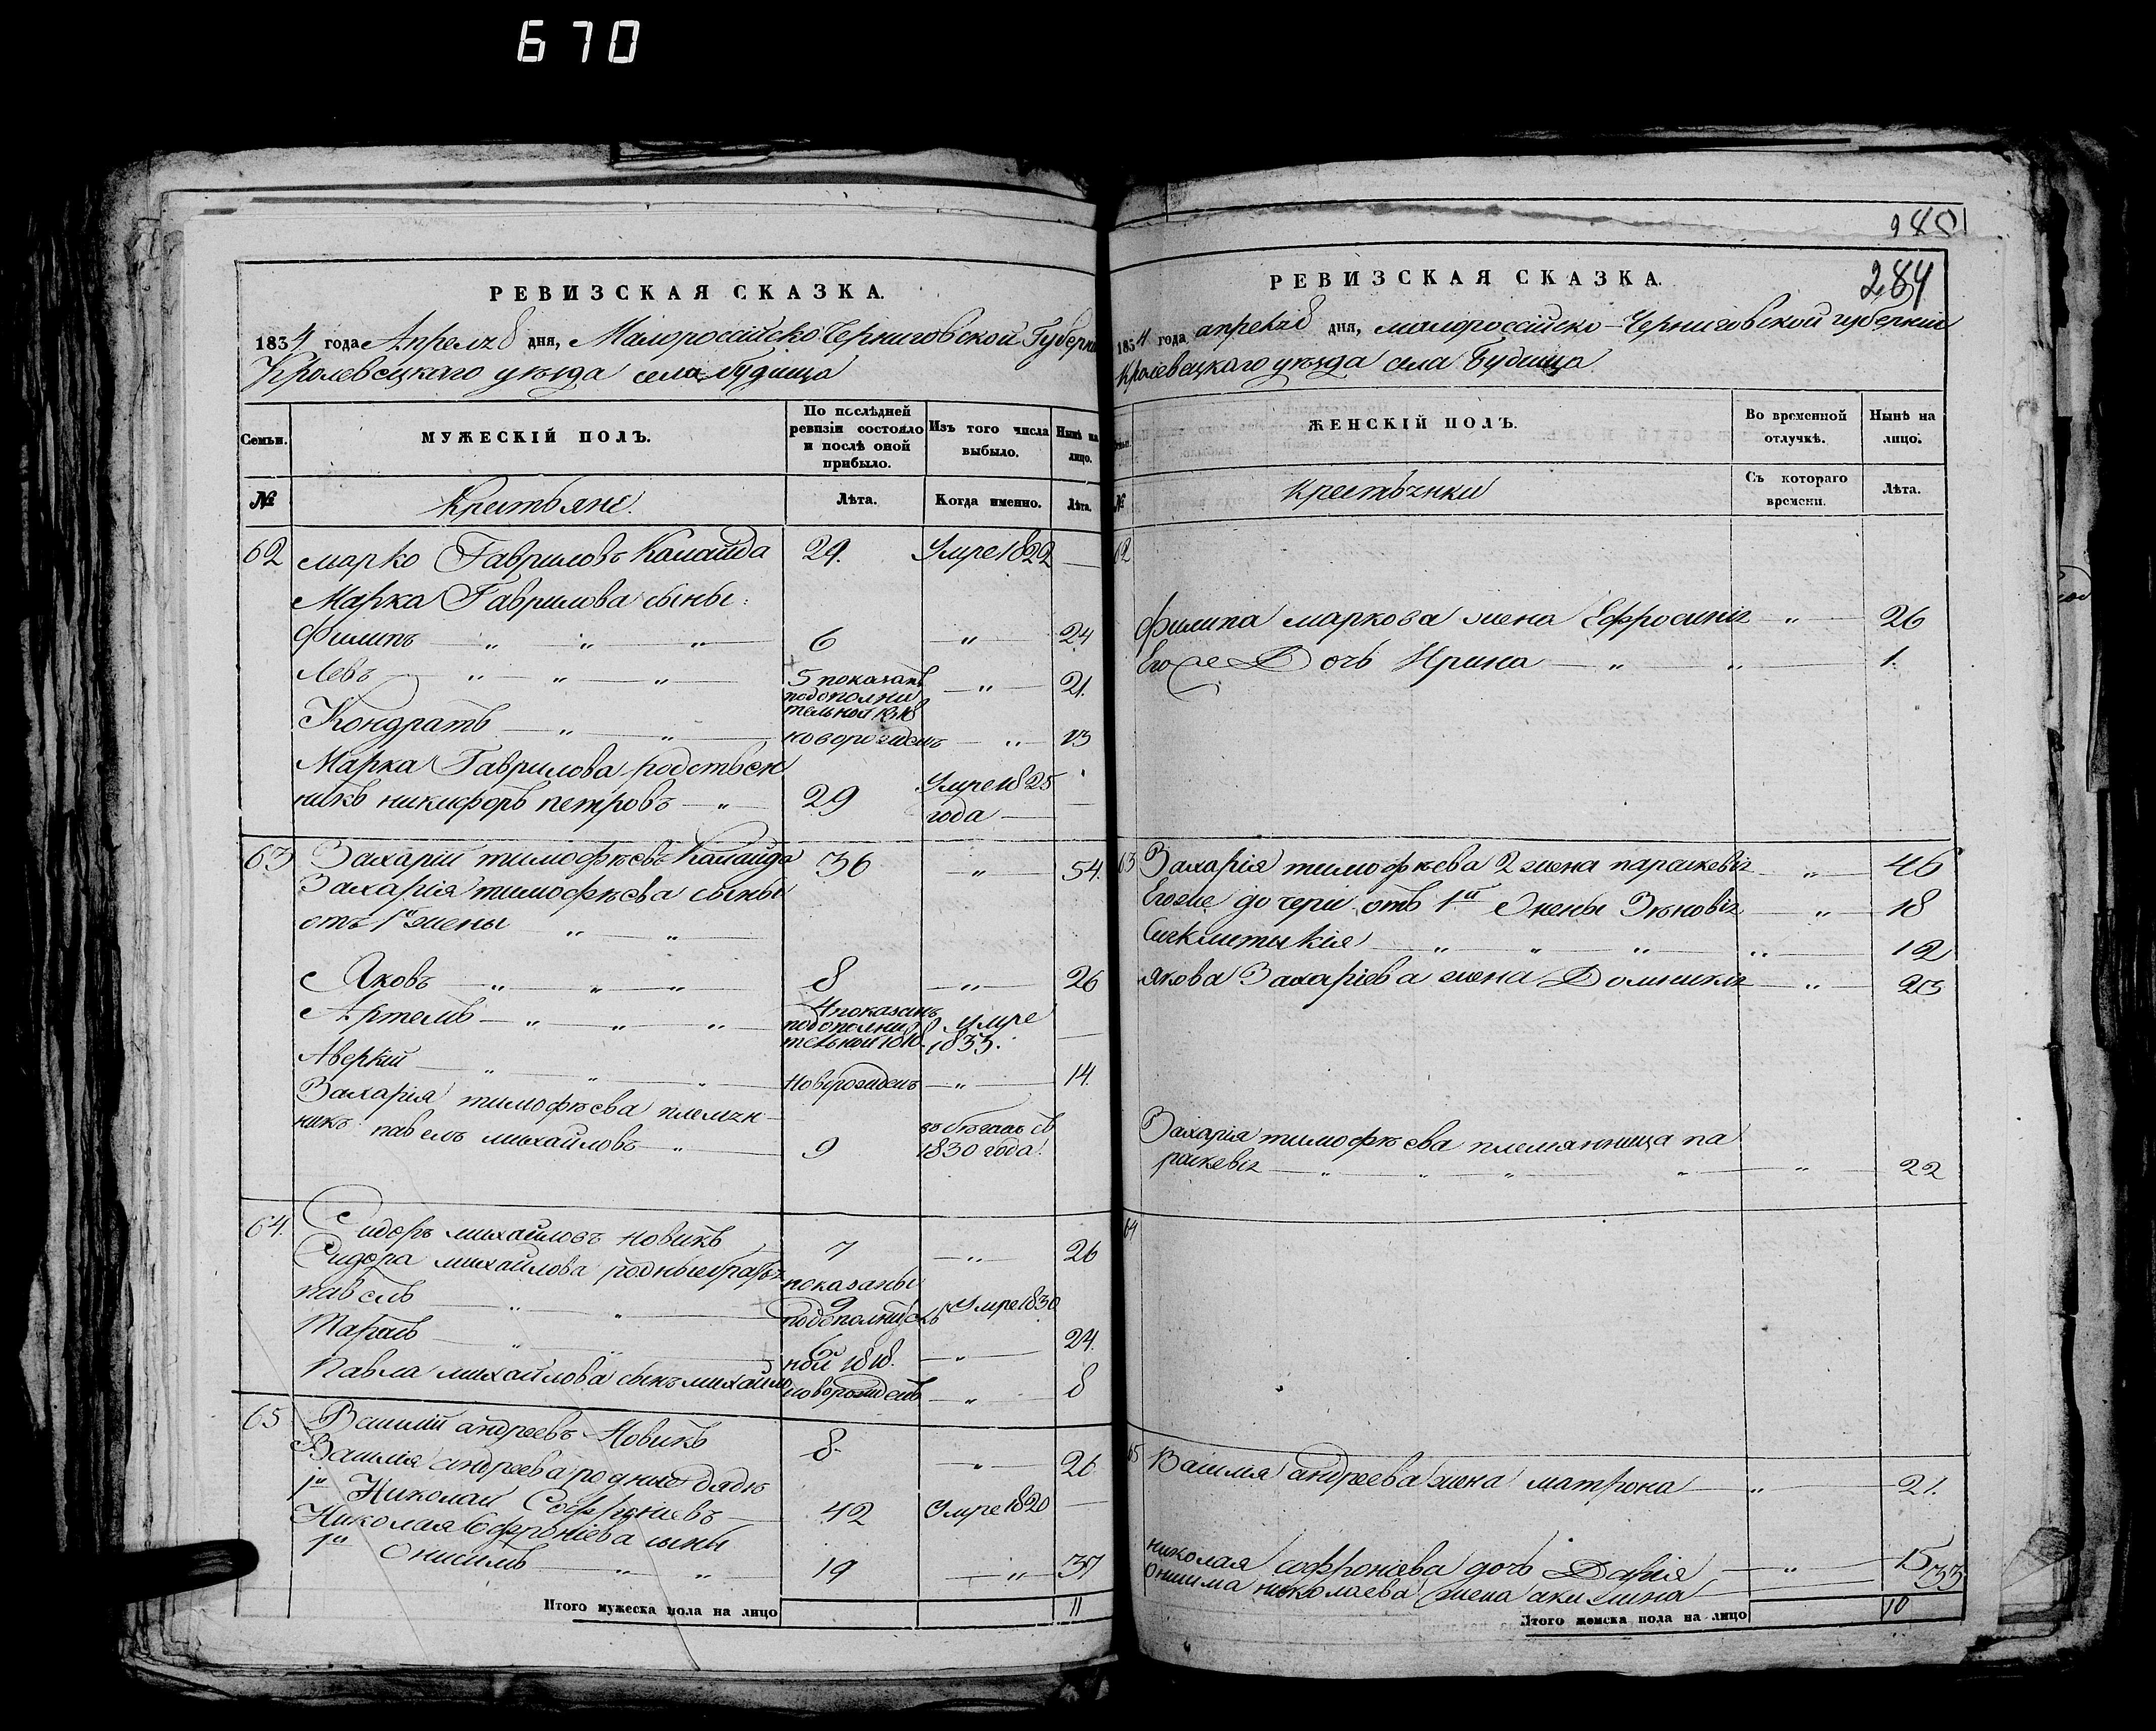 670
РЕВИЗСКАЯ СКАЗКА.
1834 года Апреля 8 дня, Малороссійско Черниговской Губерни
Кролевецкаго уезда села Будища
Семьи.
МУЖЕСКІЙ ПОЛЪ.
По послѣдней ревизіи состояло и послѣ оной прибыло.
Изъ того числа выбыло.
Нынѣ на лицо.
№
Крестьяне.
Лѣта.
Когда именно.
Лѣта.
62 марко Гавриловъ Каланда 29. Умре 1822 —
Марка Гаврилова сыны:
Филипъ — „ — „ — „ — 6 — „ — 24
Левъ — „ — „ — „ — 5 показанъ — „ — 21.
подополни
тельной 1818
Кондратъ — „ — „ — новорожденъ — „ — 13
Марка Гаврилова родствен
никъ никифоръ петровъ — „ — 29 Умре 1825 —
года —
63 Захарій тимофѣевъ Каланда 36 — „ — 54.
Захарія тимофѣева сыны
отъ 1й жены „ — „ —
Яковъ — „ — „ — „ — 8 — „ — 26
Артемъ — „ — „ — „ — 4 показанъ Умре —
подополни
тельной 1818. 1833.
Аверкій — „ — „ — „ — Новорожденъ — „ — 14.
Захарія тимофѣева племян
никъ павелъ михайловъ — „ — 9 въ бѣгахъ съ
1830 года.
64. Сидоръ михайловъ новикъ 7 — „ — 26
Сидора михайлова родные братья показаны
павелъ — „ — „ — 9 Умре 1830
подополнительной
Тарасъ — „ — „ — 6 — „ — 24.
ной 1818.
Павла михайлова сынъ михайло новорожденъ — „ — 8
65 Василій андреевъ Новикъ 8. — „ — 26
Василія андреева родные дяди
1й Николай Софроніевъ — 42 Умре 1820 —
Николая Софроніева сыны
1й Онисимъ — „ — „ 19 — „ — 37
Итого мужеска пола на лицо 11
284
РЕВИЗСКАЯ СКАЗКА.
1834 года апреля 8 дня, малороссійско-Черниговской губерніи
Кролевецкаго уезда села Будища
ЖЕНСКІЙ ПОЛЪ.
Во временной отлучкѣ.
Нынѣ на лицо.
№
Крестьянки
Съ котораго времени.
Лѣта.
62
Филипа маркова жена Ефросинія — „ — 26
Его же Дочь Ирина — „ — „ — 1.
63 Захарія тимофѣева 2 жена параскевія — „ — 46
Егоже дочери отъ 1й жены Зѣновія — „ — 18
Сиклитыкія — „ — „ — „ — „ — 12
Якова Захаріева жена Домникія — „ — 23
Захарія тимофѣева племянница па
раскевія — „ — „ — „ — „ — „ — 22
64
65 Василія андреева жена матрона — „ — 21.
николая софроніева дочь Дарія — „ — 15
Онисима николаева жена акилина — 33
Итого женска пола на лицо 10